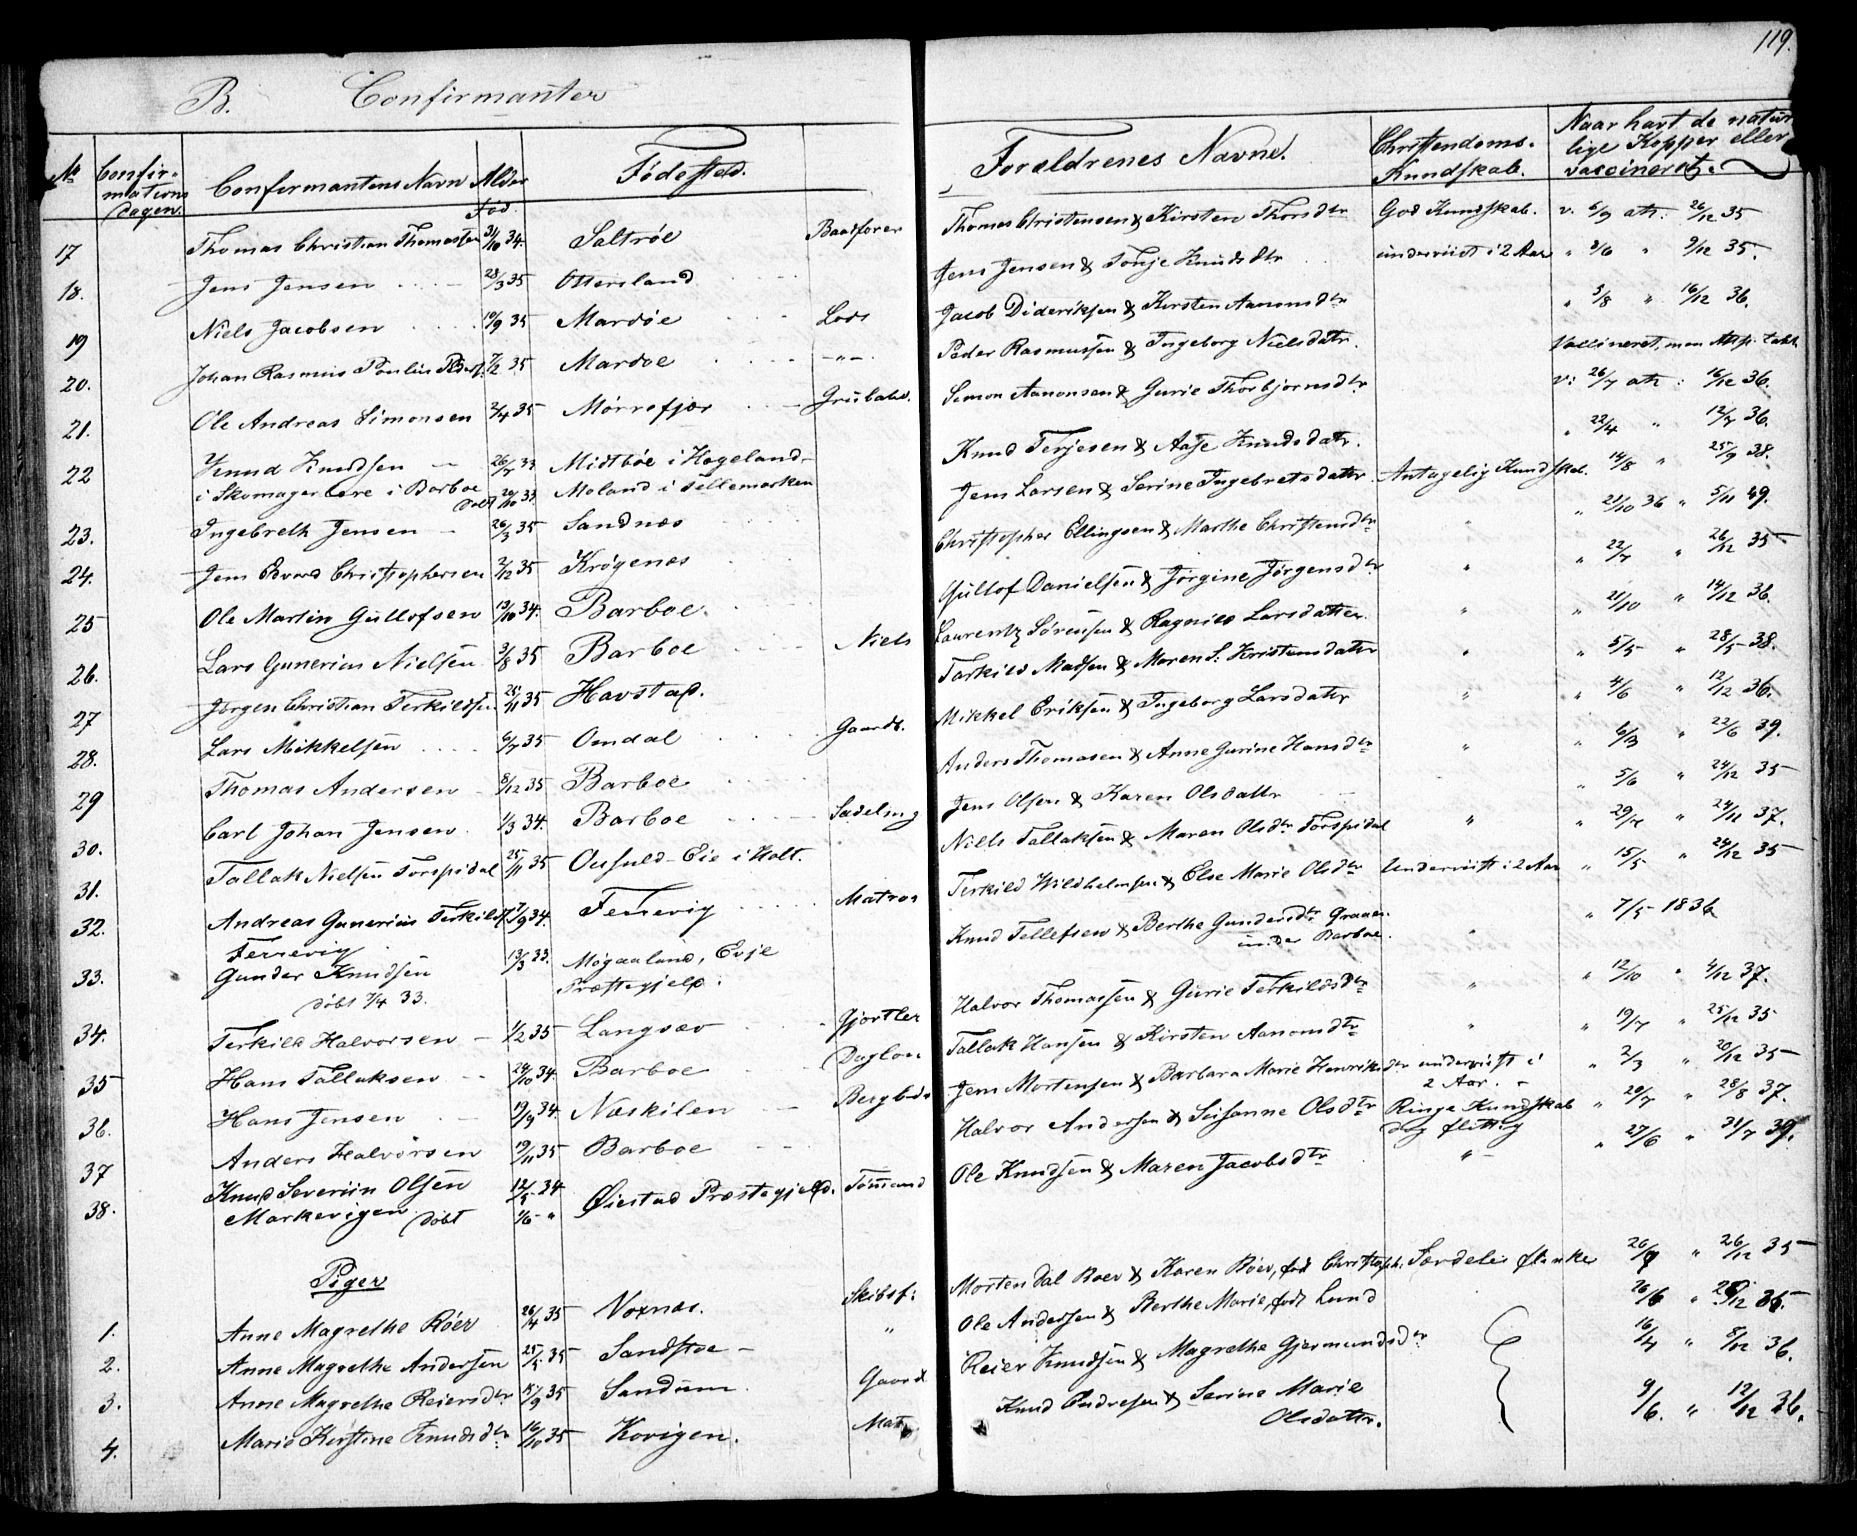 119.
B. Confirmanter
No Confirmations Dagen. Confirmantens Navn Alder Fødested. Forældrenes Navne. Christendoms-Kundskab. Naar havt de naturlige Kopper eller vaccineret.
Fød.
17 Thomas Christian Thomassen 31/10 34. Saltrøe Baadfører Thomas Christensen & Kirsten Thorsdtr God Kundskab. v. 5/9 att. 26/12 35
18. Jens Jensen 28/3 35 Ottersland Jens Jensen & Tonje Knudsdtr underviist i 2 Aar " 2/6 " 9/12 35.
19 Niels Jacobsen 10/9 35 Mardøe Lods Jacob Dideriksen & Kirsten Aanonsdtr " 3/8 " 16/12 36.
20. Johan Rasmus Poulin Peders. 7/2 35 Mardøe -"- Peder Rasmussen & Ingeborg Nielsdatr. Vaccineret, men Att.
21. Ole Andreas Simonsen 2/4 35 Mørrefjær Grubarb. Simon Aanonsen & Gurie Thorbjornsdtr v: 26/7 att: 16/12 36.
22 Knud Knudsen 26/7 33 Midtbøe i Hogeland- Knud Terjesen & Aase Knudsdatr. " 22/4 " 12/7 36.
i Skomagerlære i Barboe Døbt 20/10 33 Moland i Tellemarken
23. Ingebreth Jensen 26/3 35 Sandnæs Jens Larsen & Serine Ingebretsdatter Antagelig Kundskab. 14/8 " 25/9 38.
24. Jens Edvard Christophersen 2/12 35 Krøgenæs Christopher Ellingsen & Marthe Christensdtr " " 21/10 36 " 5/11 49.
25 Ole Martin Gullofsen 13/10 34. Barboe. Gullof Danielsen & Jørgine Jørgensdtr " " 22/7 " 26/12 35
26. Lars Gunerius Nielsen 3/8 35 Barboe Niels Laurentz Sørensen & Ragnild Larsdatter " " 21/10 " 14/12 36.
27 Jørgen Christian Terkildsen 25/11 35 Havstad. Tarkild Madsen & Maren S. Kristensdatr " " 5/5 " 28/5 38.
28. Lars Mikkelsen 6/7 35 Omdal Gaardb. Mikkel Eriksen & Ingeborg Larsdatr " " 4/6 " 12/12 36.
29 Thomas Andersen 8/12 35 Barboe Anders Thomasen & Anne Gurine Hansdtr " " 6/3 " 22/6 39.
30. Carl Johan Jensen 1/3 34. Barboe Sadelmg Jens Olsen & Karen Olsdattr " 5/6 " 24/12 35
31. Tallak Nielsen Torspidal 25/11 35 Oufuld-Eie i Holt. Niels Tallaksen & Maren Olsdtr Torspidal " " 29/12 " 24/11 37.
32. Andreas Gunerius Terkilds. 17/9 34. Fersevig Matros Terkild Wildhelmsen & Else Marie Olsdtr Underviist i 2 Aar " 15/5 " 24/12 35
Fersevig
33. Gunder Knudsen 13/3 33. Mogaaland, Evje Knud Tellefsen & Berthe Gundersdtr Graaen " " 7/5 - 1836
døbt 7/4 33. Præstegjeld. under Barboe.
34. Terkild Halvorsen 1/2 35 Langsæv Gjørtler Halvor Thomassen & Gurie Terkildsdtr " " 12/10 " 4/12 37.
35 Hans Tallaksen 24/10 34. Barboe Daglon Tallak Hansen & Kirsten Aanonsdtr " " 19/7 " 25/12 35
36. Hans Jensen 19/9 34. Næskilen Bergbdr Jens Mortensen & Barbara Marie Henriksdtr underviist i 2 Aar. " 2/3 " 20/12 35
37 Anders Halvorsen 19/11 35 Barboe Halvor Andersen & Susanne Olsdtr Ringe Kundskab dog flittig " 20/7 " 28/8 37.
38. Knud Severiin Olsen 12/5 34 Øiestad Præstegjeld. Tømmand Ole Knudsen & Maren Jacobsdtr " " 27/6 " 31/7 39.
Markevigen døbt 1/6 "
Piger
1. Anne Magrethe Røer 26/4 35 Noxnæs. Skibsf: Morten Dal Røer & Karen Røer, fød Christoph. Særdeles flinke 26/9 " 26/12 35
2. Anne Magrethe Andersen 25/5 35 Sandstøe " Ole Andersen & Berthe Marie, født Lund 26/6 " 28/12 35.
3. Anne Magrethe Reiersdtr 15/9 35 Sandum. Gaard Reier Knudsen & Magrethe Gjermundsdtr 16/4 " 8/12 36.
4. Marie Kirstine Knudsdtr 16/10 35 Kovigen. Mat Knud Endresen & Serine Marie 9/6. " 12/12 36.
Olsdattr.